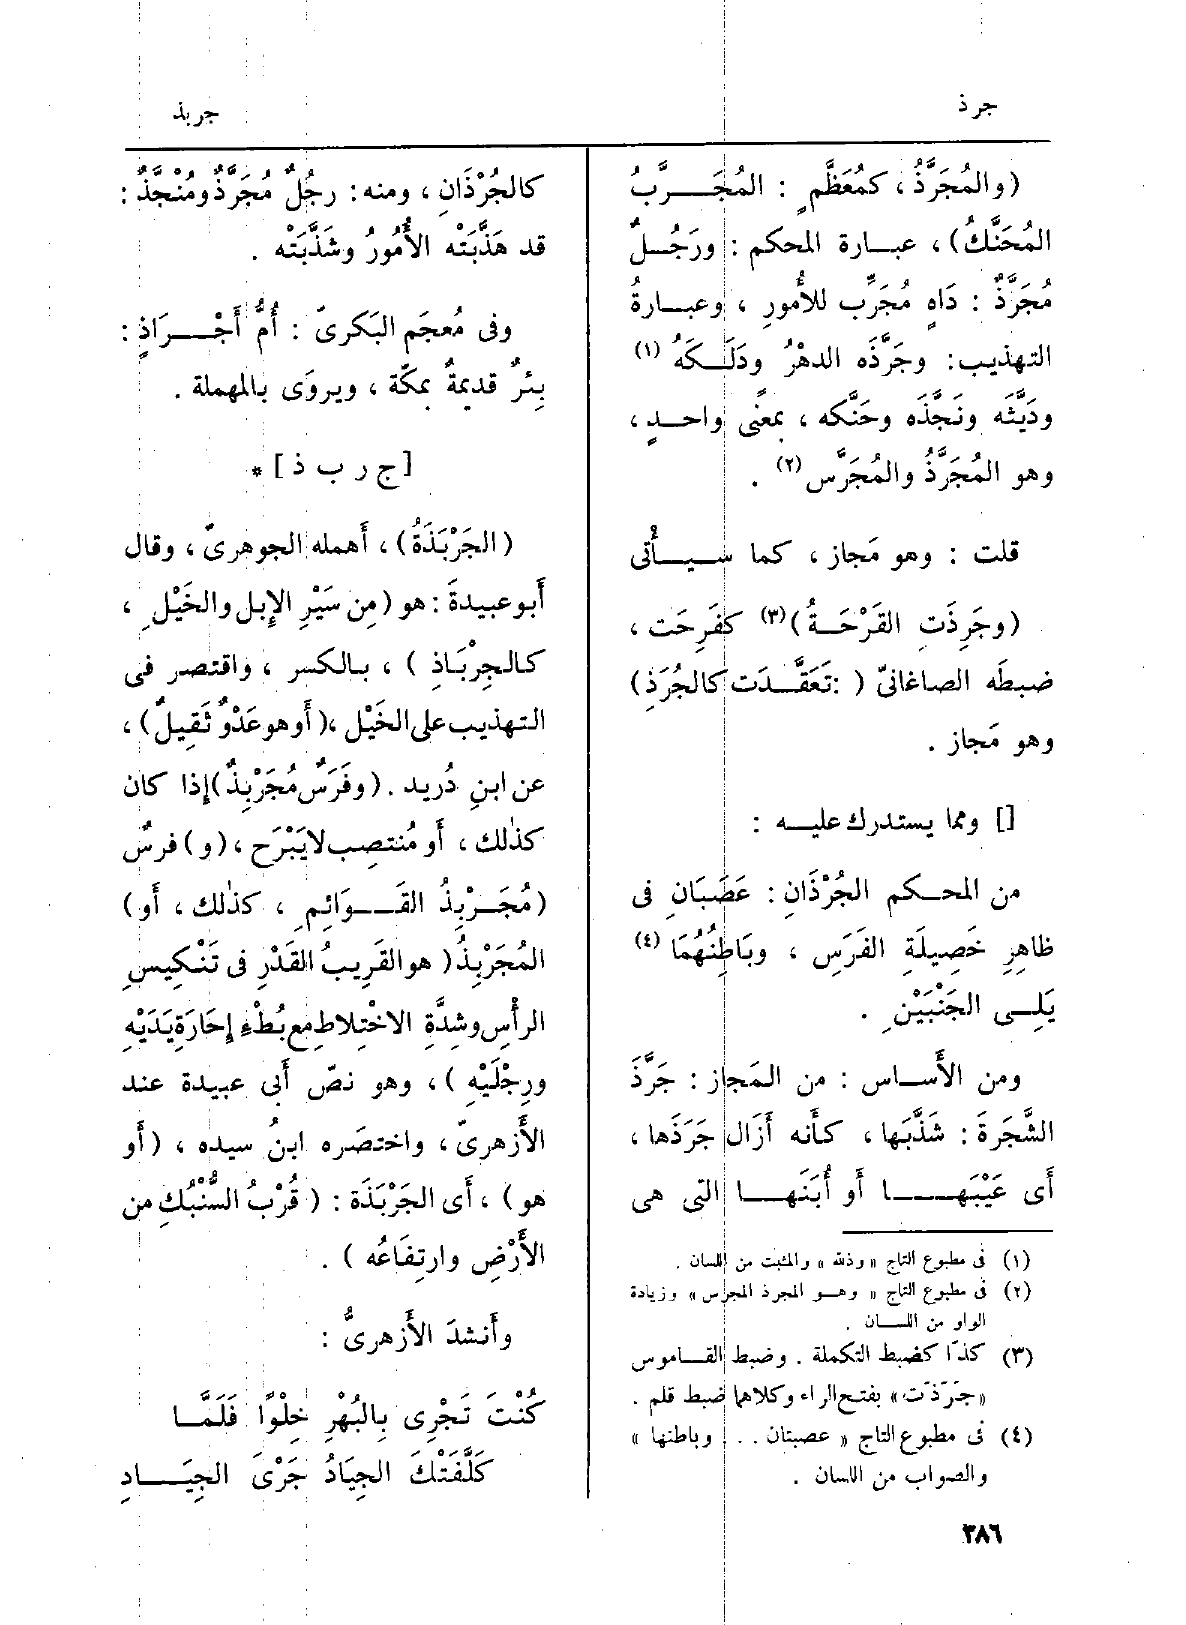 جرذ
جربذ
(والمُجَرَّذُ، كمُعَظَّمٍ : المُجَـرَّبُ
المُحَنَّكُ) ، عبارة المحكم : ورَجُـلٌ
مُجَرَّذٌ : دَاهٍ مُجَرِّب للأُمورِ ، وعبارةُ
التهذيب: وجَرَّذَه الدهْرُ ودَلَـكَهُ (١)
ودَيَّثَه ونَجَّذَه وحَنَّكه ، بمعنًى واحدٍ ،
وهو المُجَرَّذُ والمُجَرَّس (٢) .
قلت : وهو مَجاز ، كما سيأْتى
(وجَرِذَتِ القَرْحَـةُ) (٣) كفَرِحَت ،
ضبطَه الصاغانىّ ( :تَعَقَّـدَت كالجُرَذِ)
وهو مَجاز .
[] ومما يستدرك عليه :
من المحكم الجُرْذَانِ : عَصَبَانِ فى
ظاهِرِ خَصِيلَةِ الفَرَسِ ، وبَاطِنُهُمَا (٤)
يَلِى الجَنْبَيْنِ .
ومن الأَساس : من المَجاز : جَرَّذَ
الشَّجَرَةَ : شَذَّبَها ، كأَنه أَزَال جَرَذَها ،
أَى عَيْبَها أَو أُبَنَها التى هى
(١) فى مطبوع التاج « وذلله » والمثبت من اللسان .
(٢) فى مطبوع التاج « وهو المجرذ المجرس » وزيادة
الواو من اللسان .
(٣) كذا كضبط التكملة . وضبط القاموس
«جَرَذَت» بفتح الراء وكلاهما ضبط قلم .
(٤) فى مطبوع التاج « عصبتان . . . وباطنها »
والصواب من اللسان .
٣٨٦
كالجُرْذَانِ ، ومنه : رجُلٌ مُجَرَّذٌ ومُنْجَّذٌ :
قد هَذَّبَتْه الأُمُورُ وشَذَّبَتْه .
وفى مُعجَم البَكرىّ : أُمُّ أَجْـرَاذٍ :
بِئرٌ قديمةٌ بمكّة ، ويروَى بالمهملة .
[ج ر ب ذ] *
(الجَرْبَذَةُ) ، أَهمله الجوهرىّ ، وقال
أَبو عبيدةَ : هو (مِن سَيْرِ الإِبل والخَيْلِ ،
كالجِرْبَاذِ ) ، بالكسر ، واقتصر فى
التهذيب على الخَيْل ،( أَو هو عَدْوٌ ثَقِيلٌ) ،
عن ابنِ دُريد . (وفَرَسٌ مُجَرْبِذٌ)إذا كان
كذٰلك ، أَو مُنتصِب لا يَبْرَح ، (و) فرسٌ
(مُجَـرْبِذُ القَـوَائِمِ ، كذٰلك ، أَو)
المُجَرْبِذُ ( هو القَرِيبُ القَدْرِ فى تَنْكِيسِ
الرأْسِ وشِدَّةِ الاخْتِلاطِ مع بُطْءِ إِحَارَةِ يَدَيْهِ
ورِجْلَيْهِ ) ، وهو نصّ أَبى عبيدة عند
الأَزهرىّ ، واختصَره ابنُ سيده ، (أَو
هو) ، أَى الجَرْبَذَة : ( قُرْبُ السُّنْبُكِ من
الأَرْضِ وارتِفَاعُه ) .
وأَنشدَ الأَزهرىُّ :
كُنْتَ تَجْرِى بِالبُهْرِ خِلْوًا فَلَمَّا
كَلَّفَتْكَ الجِيَادُ جَرْىَ الجِيَادِ